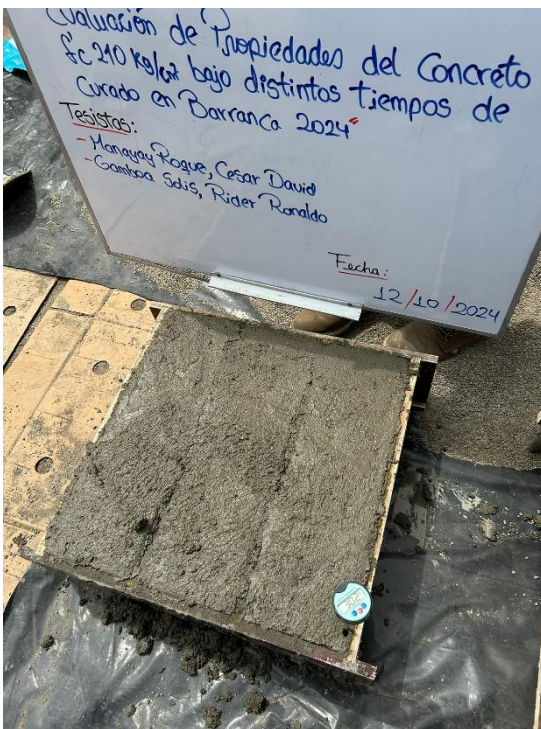 Evaluación de Propiedades del Concreto
f'c 210 kg/cm² bajo distintos tiempos de
Curado en Barranca 2024"
Tesistas:
- Manayay Roque, Cesar David
- Gamboa Solis, Rider Ronaldo
Fecha:
12/10/2024